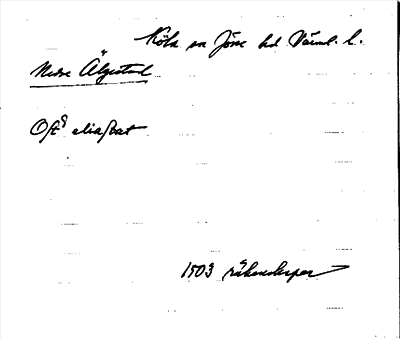 Köla sn Jösse hd Värml. l.
Nedre Älgestad
Oftş eliaſtat
1503 räkenskaper